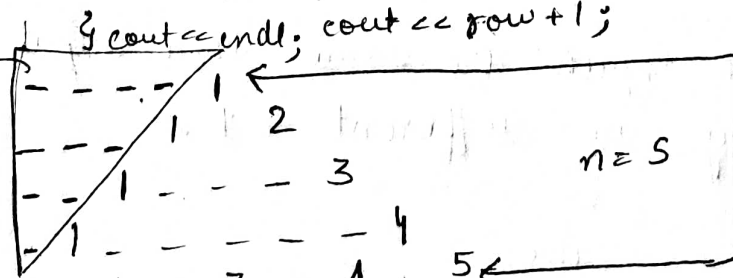 } cout << endl; cout << row + 1;
- - - - 1
- - - 1 2
- - 1 - - - 3
n = 5
- 1 - - - - - 4
5